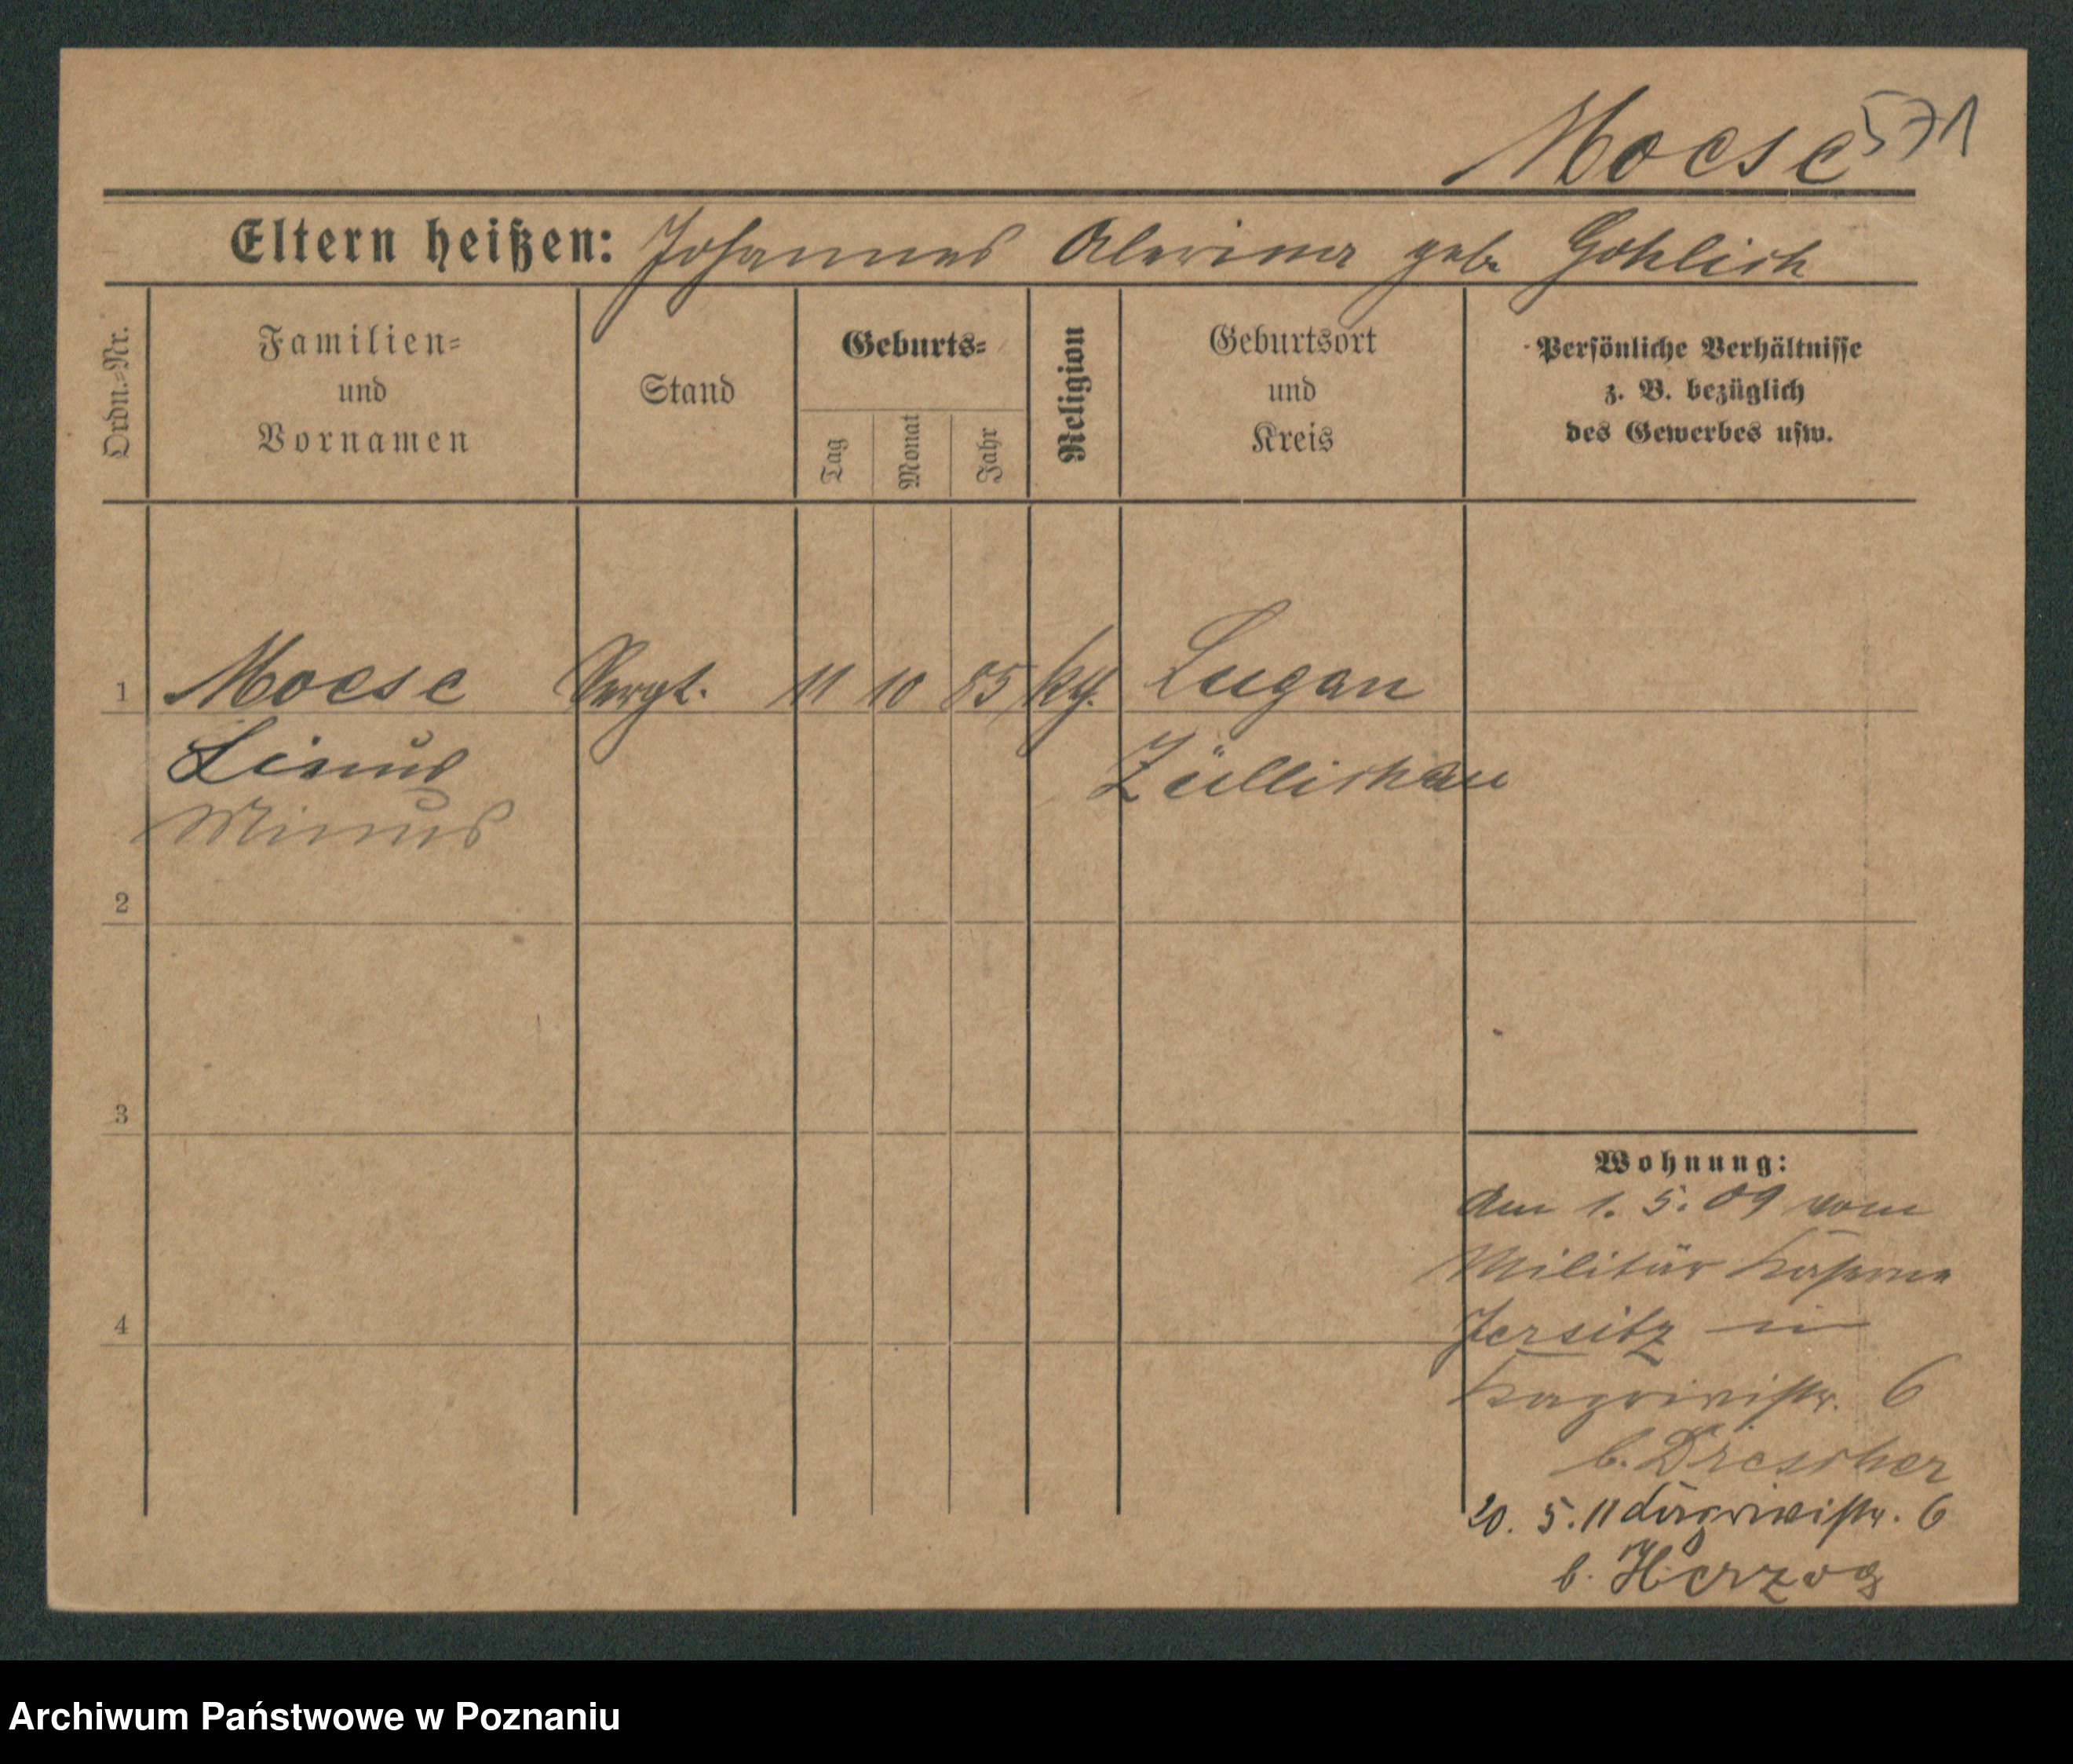 Moese 571
Eltern heißen: Johannes geb. Gohlisch
Ordn.-Nr.
Familien-
und
Vornamen
Stand
Geburts-
Tag
Monat
Jahr
Religion
Geburtsort
und
Kreis
Persönliche Verhältnisse
z. B. bezüglich
des Gewerbes usw.
1 Moese Sergt. 11 10 85 Lugau
Linus Züllichau
Minus
2
3
4
Wohnung:
Am 1. 5. 09 vom
Militär Kaserne
Jersitz in
6
b. Driescher
20. 5. 11 6
b. Herzog
Archiwum Państwowe w Poznaniu